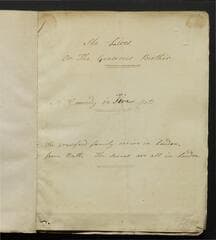 The Liar
Or The Generous Brother
A Comedy in Five Acts
The Crawford family arrive in London,
from Bath. The scenes are all in London